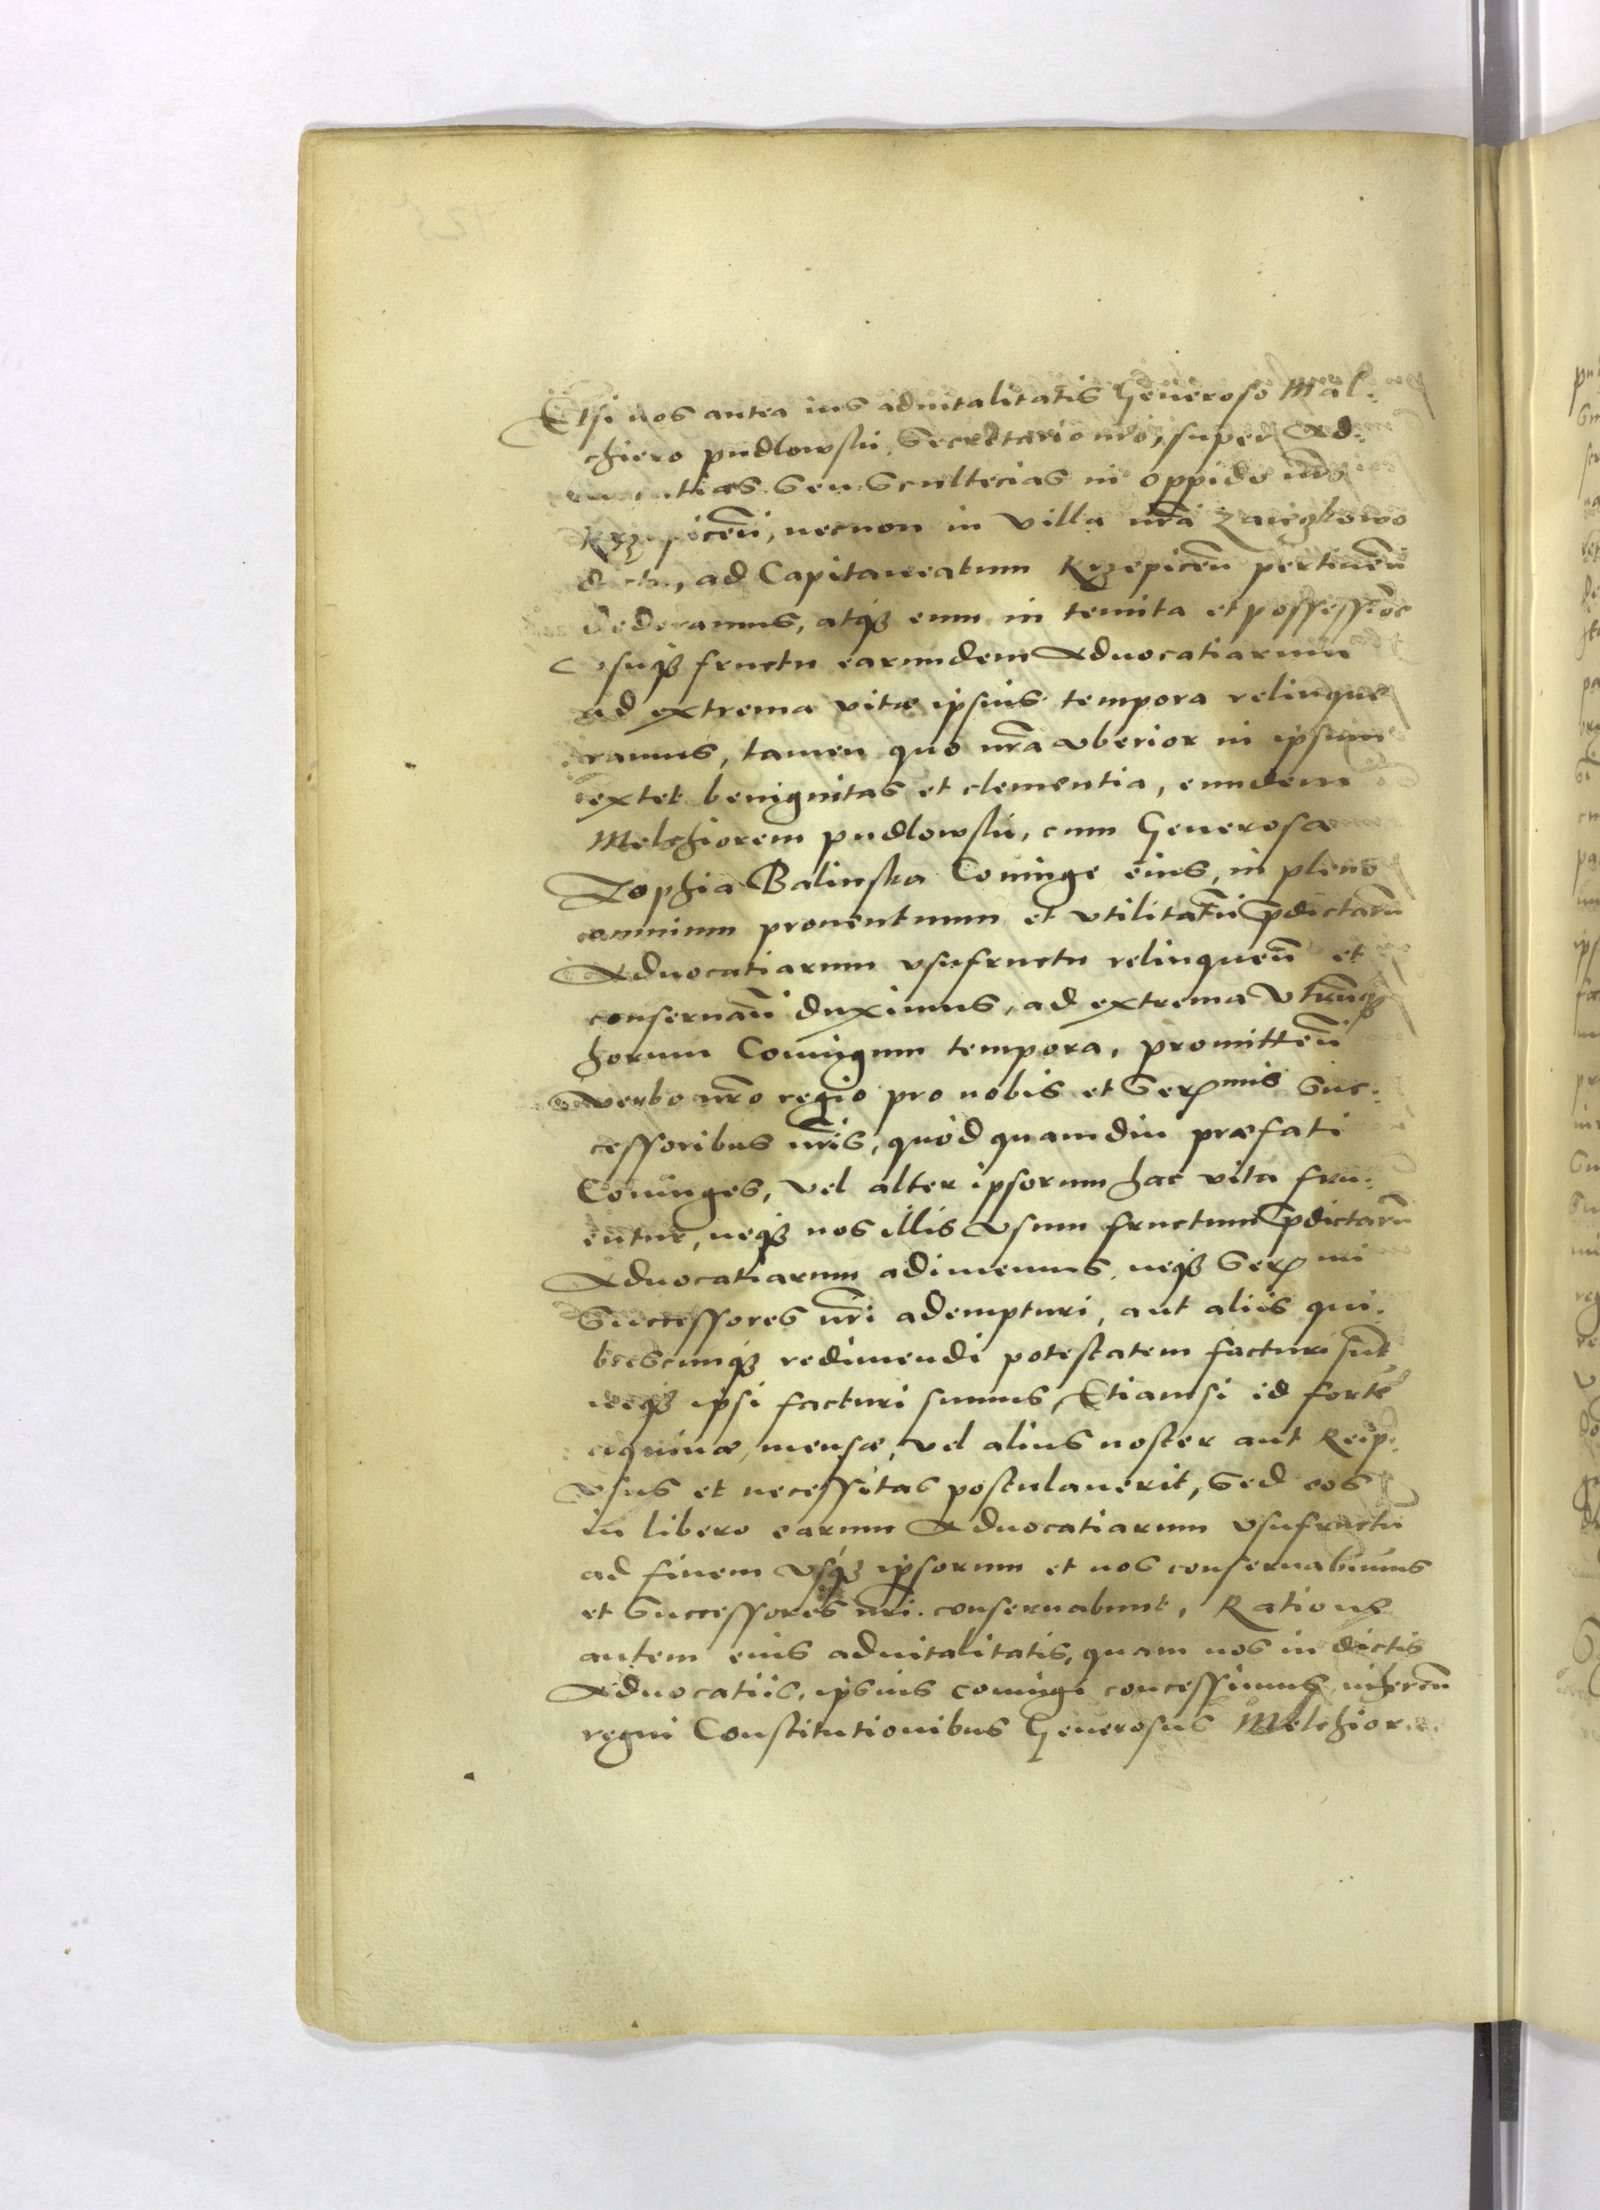 Etsi nos antea ius aduitalitatis Generoso Mal-
chiero Pudlowski, Secretario nr̃o, super Ad-
uocatias seu Scultecias in oppido nr̃o
Krzepiceñ, necnon in villa nr̃a
dicta, ad Capitaneatum Krzepiceñ pertineñ
dederamus, atq3 eum in tenuta et possessiõe
Vsuq3 fructu earundem Aduocatiarum
ad extrema vitæ ipsius tempora relinque
ramus, tamen quo nr̃a vberior in ipsum
extet benignitas et clementia, eundem
Melchiorem Pudlowski, cum Generosa
Zophia Balinska Coniuge eius, in pleno
omnium prouentuum et vtilitatũ p̃dictarũ
Aduocatiarum vsufructu relinqueñ et
conseruañ duximus, ad extrema vtriusq3
horum Coniugum tempora, promitteñ
verbo nr̃o regio pro nobis et Ser̃mis Suc-
cessoribus nr̃is, quòd quamdiu præfati
Coniuges, vel alter ipsorum hac vita fru-
entur, neq3 nos illis Vsum fructum p̃dictarũ
Aduocatiarum adimemus, neq3 Ser̃mi
Successores nr̃i adempturi, aut aliis qui-
buscunq3 redimendi potestatem facturi sũt
neq3 ipsi facturi sumus, Etiamsi id forte
mensæ, vel alius noster aut Reip:
vsus et necessitas postulauerit, Sed eos
in libero earum Aduocatiarum vsufructu
ad finem vsq3 ipsorum et nos conseruabimus
et Successores nr̃i conseruabunt, Ratione
autem eius aduitalitatis, quam nos in dictis
Aduocatiis, ipsius coniugi concessimus, inhereñ
regni Constitutionibus Generosus Melchior